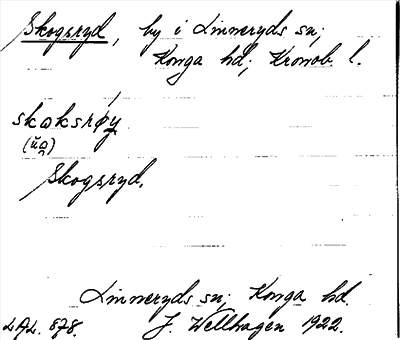 Skogsryd, by i Linneryds sn;
Konga hd; Kronob. l.
skɷksrøy
(ŭɷ)
Skogsryd.
Linneryds sn; Konga hd
LAL. 878. J. Wellhagen 1922.